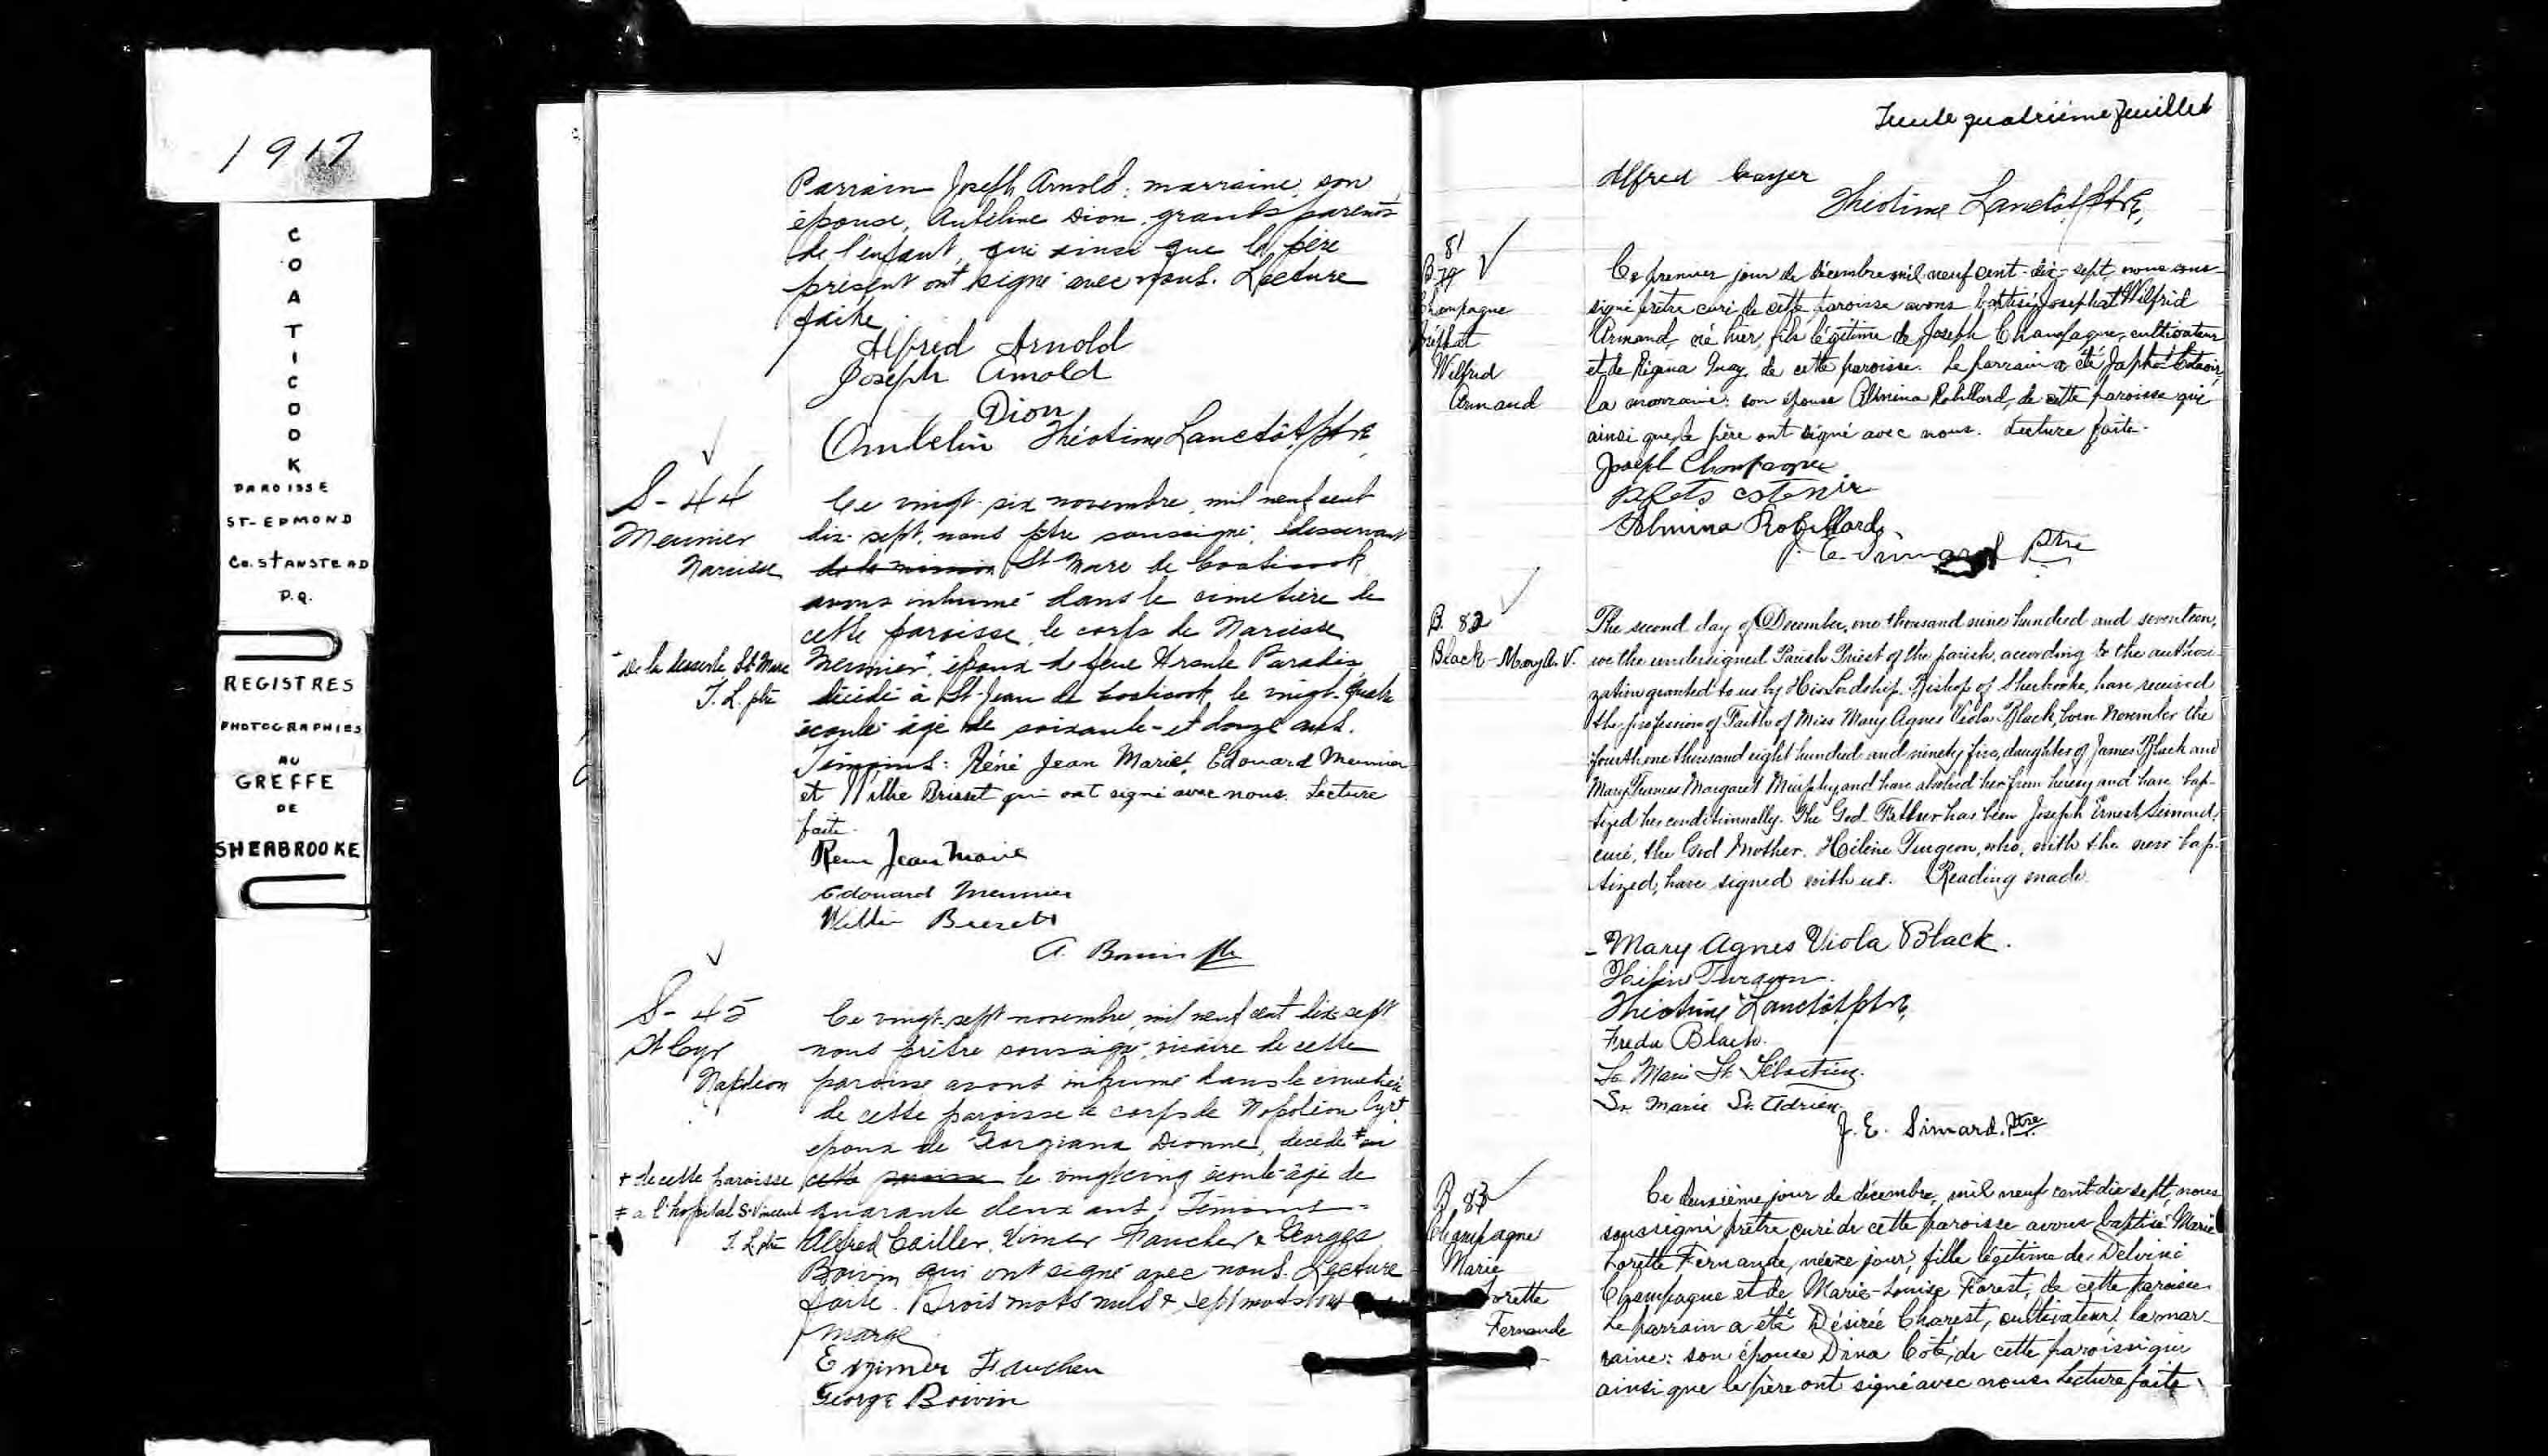 1917
COATICOOK
PAROISSE
ST-EDMOND
Co. STANSTEAD
P.Q.
REGISTRES
PHOTOGRAPHIES
AU
GREFFE
DE
SHERBROOKE
Parrain Joseph Arnold: marraine, son
épouse, Dion, grands parents
de l'enfant, qui ainsi que le père
présent ont signé avec nous. Lecture
faite.
Alfred Arnold
Joseph Arnold
Dion
Théotime Lanctôt, ptre
S-44
Meunier
Narcisse
Ce vingt-six novembre, mil neuf cent
dix-sept, nous ptre soussigné, desservant
de la mission St Marc de Coaticook
avons inhumé dans le cimetière de
cette paroisse, le corps de Narcisse
" De la desserte St Marc
T. L. ptre
Meunier", époux de feue Ursule Paradis,
décédé à St-Jean de Coaticook le vingt-quatre
écoulé âgé de soixante-et douze ans.
Témoins: Réné Jean Marie, Edouard Meunier
et Willie Brisset qui ont signé avec nous. Lecture
faite.
Rene Jean Marie
Edouard Meunier
Willie
S-45
St Cyr
Napoléon
Ce vingt-sept novembre, mil neuf cent dix-sept
nous prêtre soussigné, vicaire de cette
paroisse avons inhumé dans le cimetière
de cette paroisse le corps de Napoléon Cyr+
époux de Georgiana Dionne, décédé ‡ en
+ de cette paroisse
‡ a l'hopital St-Vincent
T. L. ptre
cette paroisse le vingt-cinq écoulé âgé de
quarante deux ans. Témoins =
Alfred Cailler, Faucher & Georges
Boivin qui ont signé avec nous. Lecture
faite. Trois mots nuls & sept mots
marge
Faucher
George Boivin
Trente quatrième feuillet
Alfred
Théotime Lanctôt, ptre,
81
B. 79
Champagne
Josephat
Wilfrid
Armand
Ce premier jour de décembre mil neuf cent-dix-sept, nous sous-
signé prêtre curé de cette paroisse avons baptisé Josephat Wilfrid
Armand, né hier, fils légitime de Joseph Champagne, cultivateur
et de Régina Guay, de cette paroisse. Le parrain a été
la marraine: son épouse Almina Robillard, de cette paroisse qui
ainsi que le père ont signé avec nous. Lecture faite.
Joseph Champagne
Almina Robillard,
J. E. Simard Ptre
B. 82
Black - Mary A. V.
The second day of December, one thousand nine hundred and seventeen,
we the undersigned Parish Priest of the parish, according to the authori-
zation granted to us by His Lordship, Bishop of Sherbrooke, have received
the profession of Faith of Miss Mary Agnes Viola Black, born November the
fourth one thousand eight hundred and ninety five, daughter of James Black and
Mary Frances Margaret Murphy, and have absolved her from heresy and have bap-
tized her conditionnally. The God-Father has been Joseph Ernest Simard,
curé, the God Mother, Hélène Turgeon, who, with the new bap-
tized, have signed with us. Reading made.
- Mary Agnes Viola Black.
Hélène Turgeon.
Théotime Lanctôt, ptre,
Freda Black.
Sr. Marie St. Sébastien.
Sr. Marie St. Adrien.
J. E. Simard, Ptre
B. 83
Champagne
Marie
Lorette
Fernande
Ce deuxième jour de décembre, mil neuf cent-dix-sept, nous
soussigné prêtre curé de cette paroisse avons baptisé Marie
Lorette Fernande, née ce jour, fille légitime de Delviné
Champagne et de Marie-Louise Forest, de cette paroisse.
Le parrain a été Désiré Charest, cultivateur, la mar-
raine: son épouse Dina Coté, de cette paroisse qui
ainsi que le père ont signé avec nous. Lecture faite.